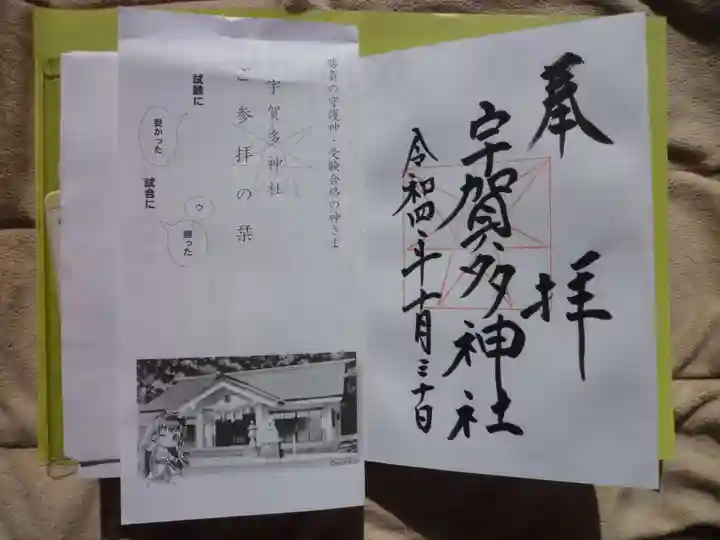 奉拝
宇賀多神社
令和四年十月三十日
勝負の守護神・受験合格の神さま
宇賀多神社
ご参拝の栞
試験に
受かった
試合に
ウ
勝った